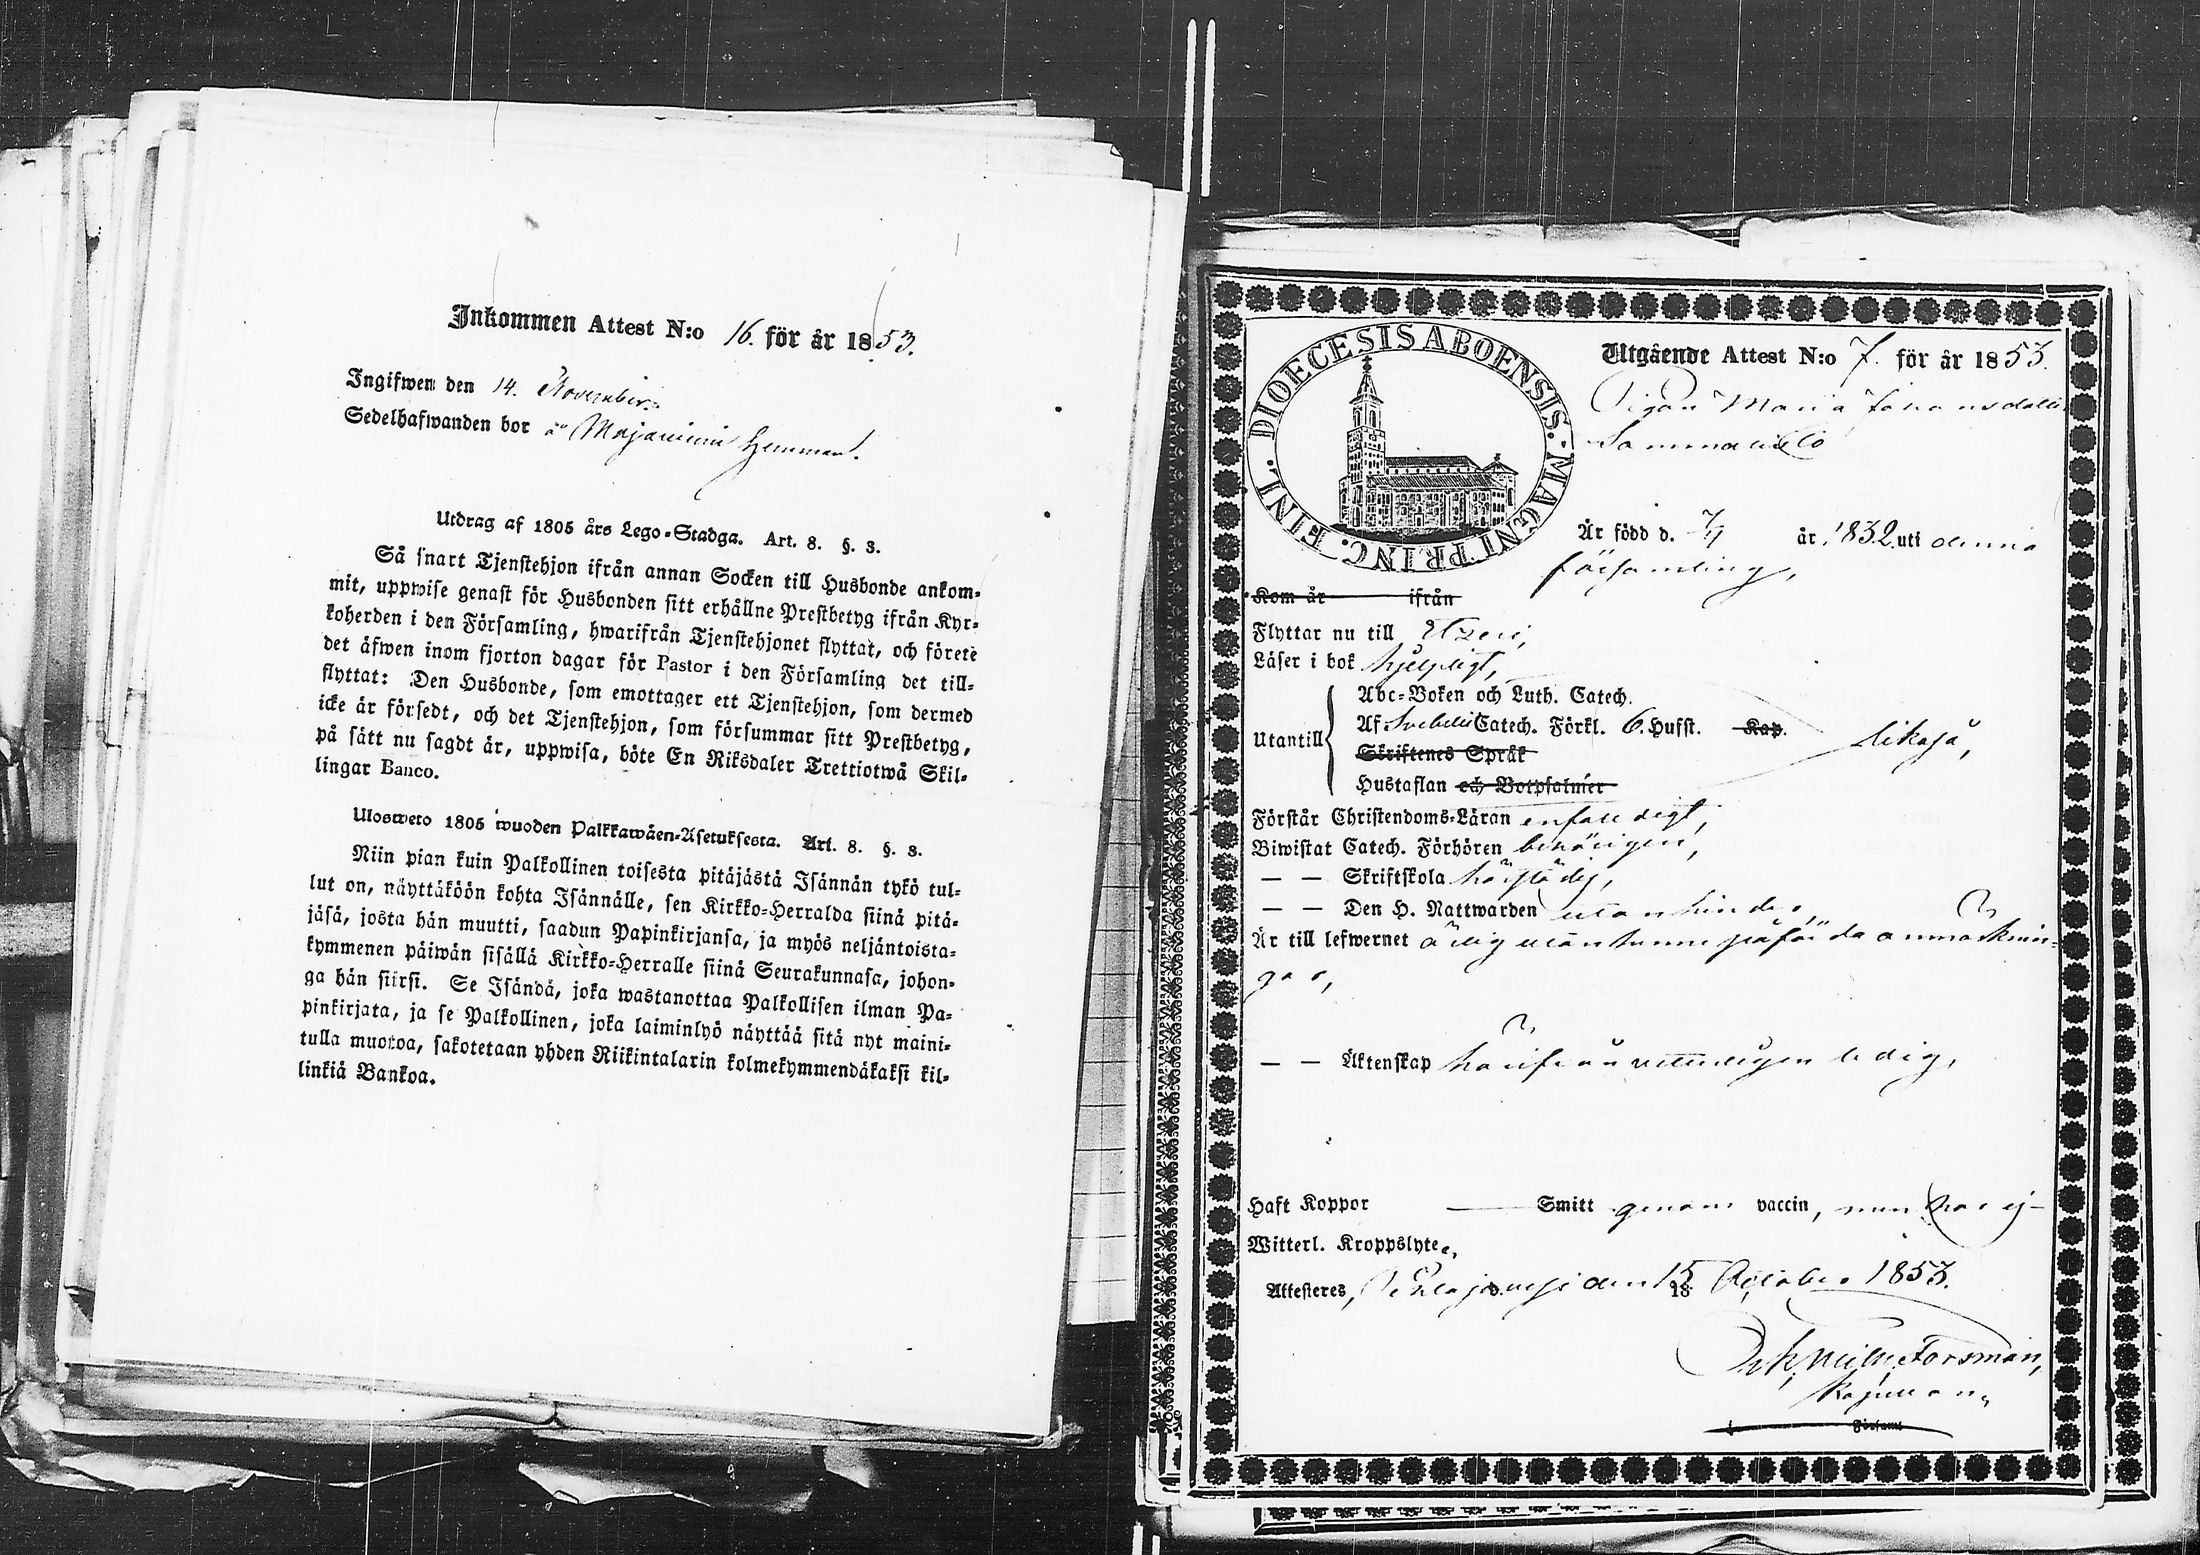 Inkommen Attest N:o 16. för år 1853.
Ingifwen den 14. November.
Sedelhafwanden bor å Majaniemi Hemman.
Utdrag af 1805 års Lego-Stadga. Art. 8. §. 3.
Så snart Tjenstehjon ifrån annan Socken till Husbonde ankom-
mit, uppwise genast för Husbonden sitt erhållne Prestbetyg ifrån Kyr-
koherden i den Församling, hwarifrån Tjenstehjonet flyttat, och förete
det äfwen inom fjorton dagar för Pastor i den Församling det till-
flyttat: Den Husbonde, som emottager ett Tjenstehjon, som dermed
icke är försedt, och det Tjenstehjon, som försummar sitt Prestbetyg,
på sätt nu sagdt är, uppwisa, böte En Riksdaler Trettiotwå Skil-
lingar Banco.
Ulosweto 1805 wuoden Palkkawäen-Asetuksesta. Art. 8. §. 3.
Niin pian kuin Palkollinen toisesta pitäjästä Isännän tykö tul-
lut on, näyttäköön kohta Isännälle, sen Kirkko-Herralda siinä pitä-
jäsä, josta hän muutti, saadun Papinkirjansa, ja myös neljäntoista-
kymmenen päiwän sisällä Kirkko-Herralle siinä Seurakunnasa, johon-
ga hän siirsi. Se Isändä, joka wastanottaa Palkollisen ilman Pa-
pinkirjata, ja se Palkollinen, joka laiminlyö näyttää sitä nyt maini-
tulla muotoa, sakotetaan yhden Riikintalarin kolmekymmendäkaksi kil-
linkiä Bankoa.
DIOECESIS ABOENSIS. MAGNI PRINC. FINL.
Utgående Attest N:o 7. för år 1853.
Pigan Maria Johansdotter
Är född d. 7/4 år 1832 uti denna
församling,
Kom år ifrån
Flyttar nu till
Läser i bok hjelpligt,
Utantill
Abc-Boken och Luth. Catech.
Af Svebelii Catech. Förkl. 6. Hufst. Kap.
likaså,
Skriftenes Språk
Hustaflan och Botpsalmer
Förstår Christendoms-Läran enfaldigt,
Biwistat Catech. Förhören behörigen,
— — Skriftskola
— — Den H. Nattwarden utan hinder
Är till lefwernet ärlig utan kunniga påförda anmärknin-
gar,
— — Äktenskap härifrån vetterligen ledig,
Haft Koppor — Smitt genom vaccin, men har ej
Witterl. Kroppslyte,
Attesteres, den 15 18 October 1853.
Forsman,
Kapellan,
i Församl